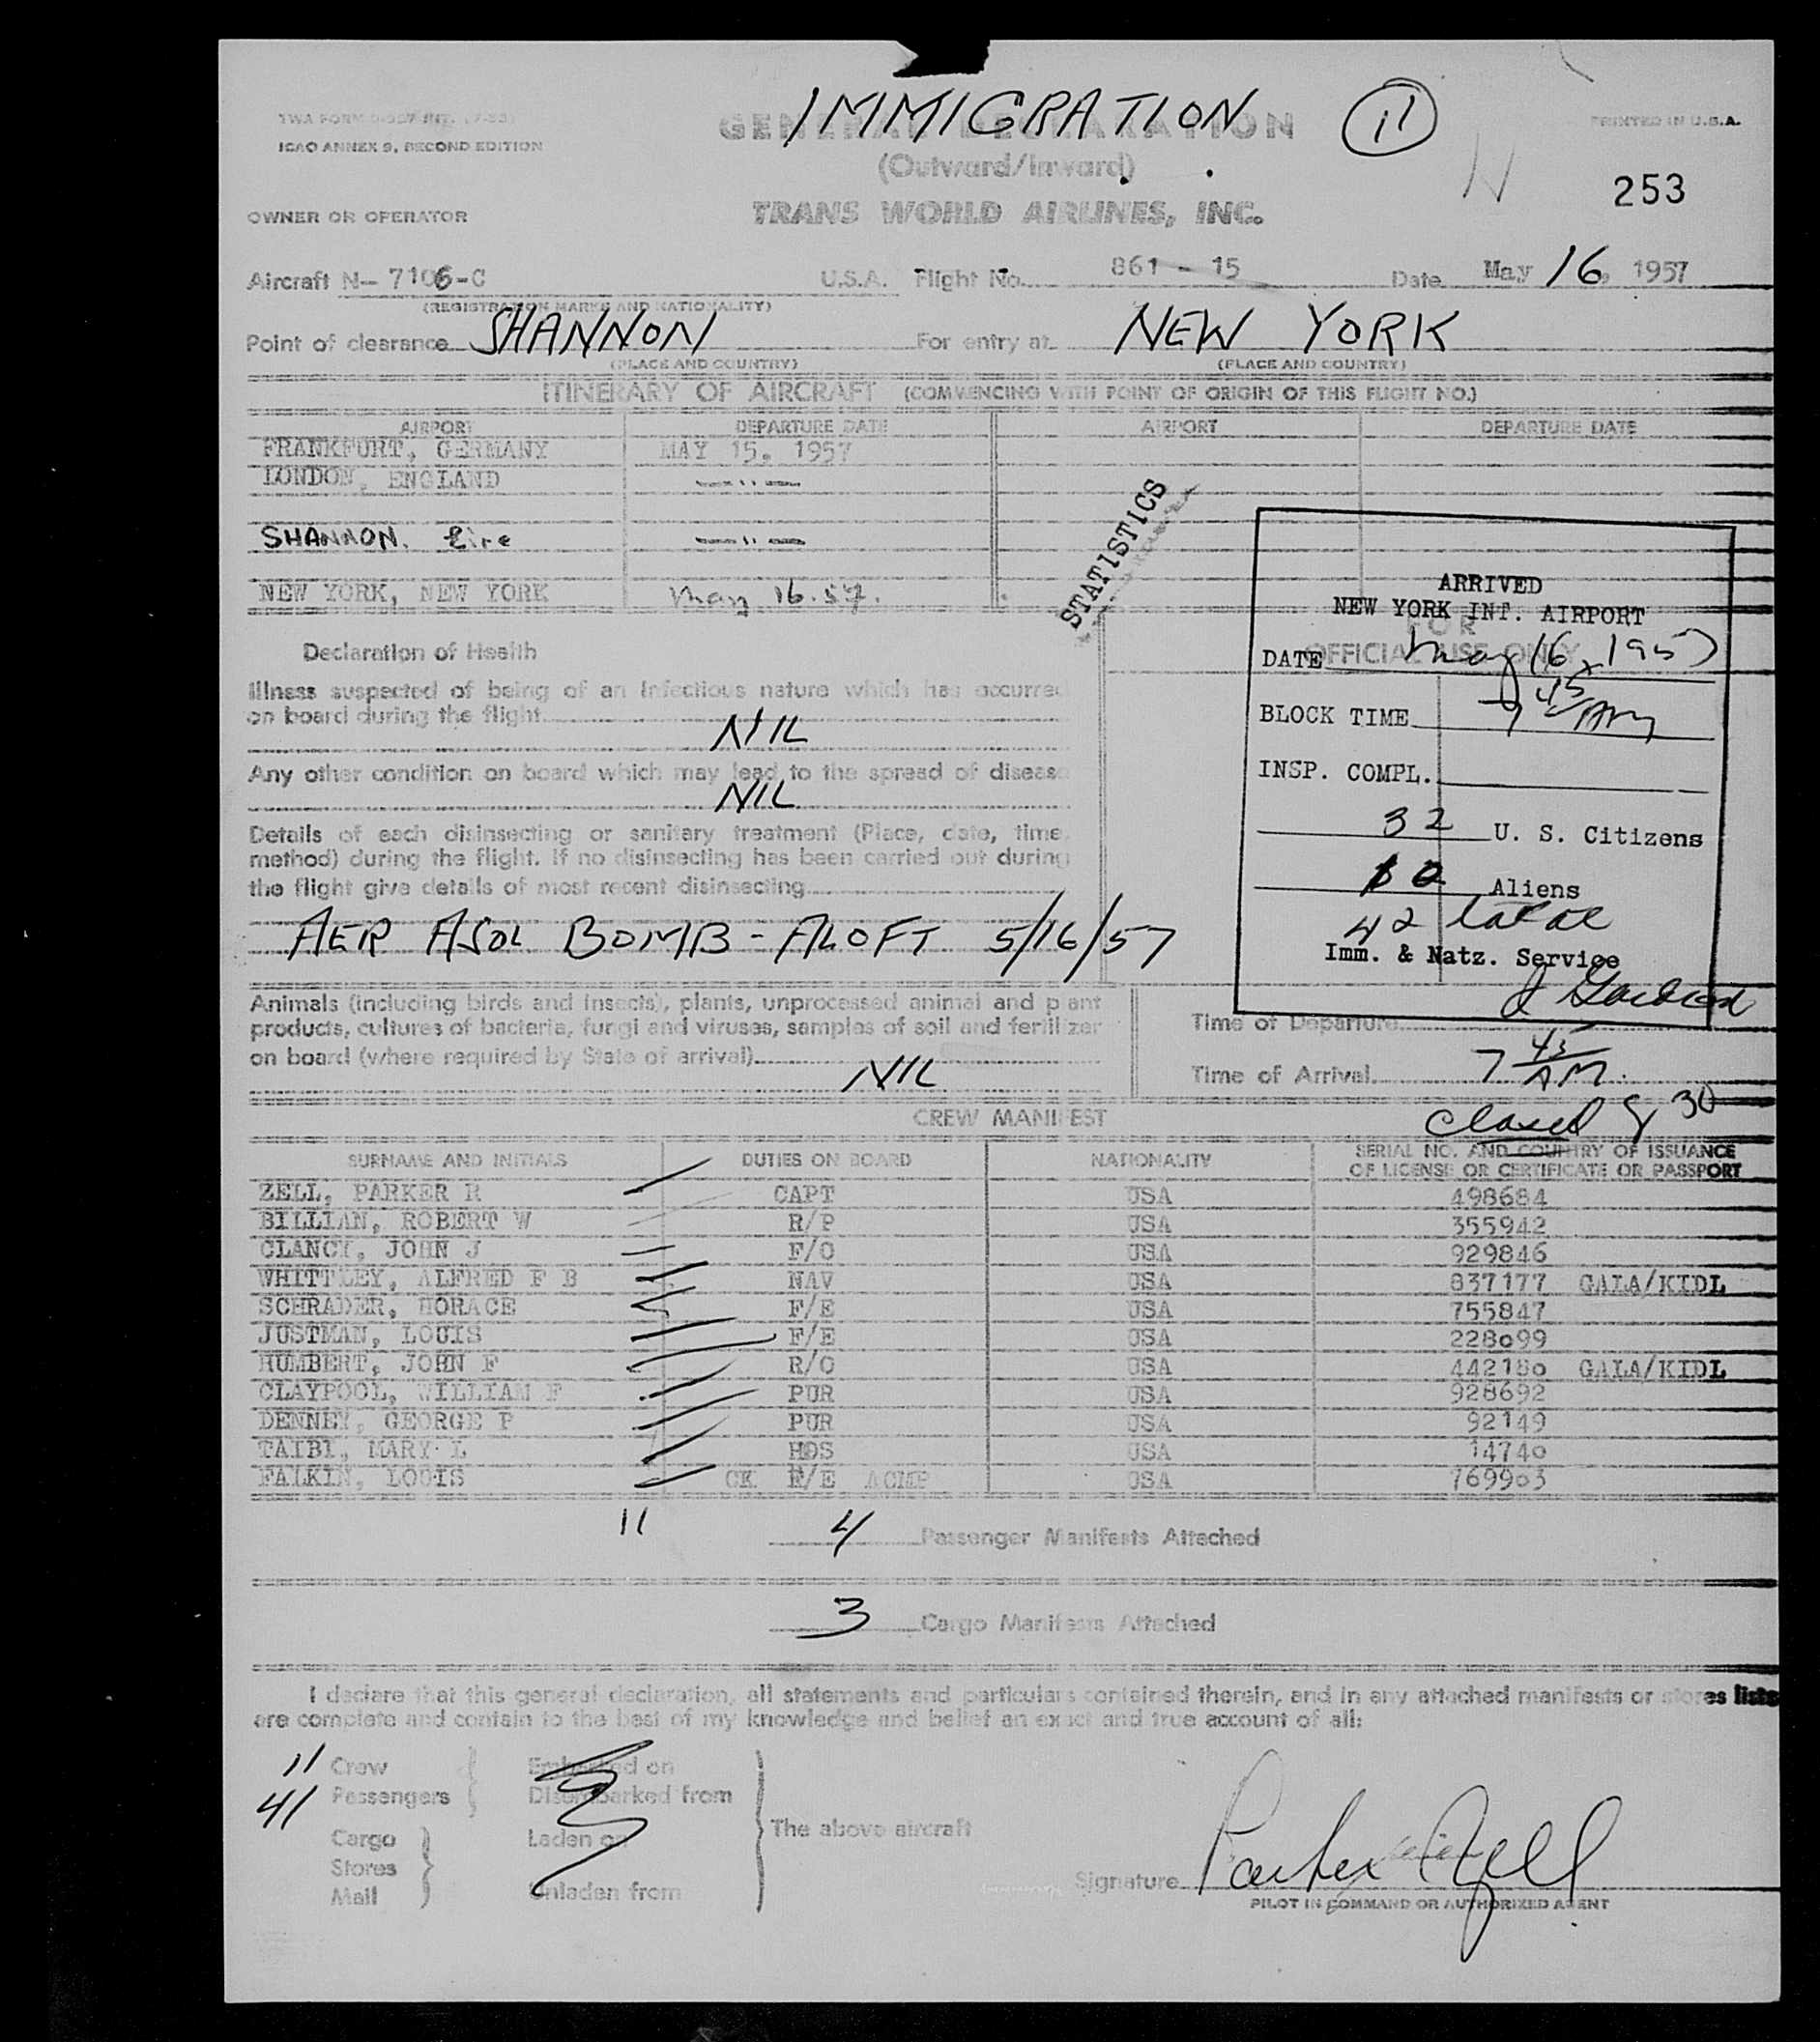 IMMIGRATION 11
TWA FORM
PRINTED IN U.S.A.
GENERAL DECLARATION
ICAO ANNEX 9, SECOND EDITION
(Outward/Inward)
253
OWNER OR OPERATOR
TRANS WORLD AIRLINES, INC.
Aircraft N- 7106-C U.S.A. Flight No. 861 - 15 Date May 16, 1957
(REGISTRATION MARKS AND NATIONALITY)
Point of clearance SHANNON For entry at NEW YORK
(PLACE AND COUNTRY) (PLACE AND COUNTRY)
ITINERARY OF AIRCRAFT (COMMENCING WITH POINT OF ORIGIN OF THIS FLIGHT NO.)
AIRPORT DEPARTURE DATE AIRPORT DEPARTURE DATE
FRANKFURT, GERMANY MAY 15, 1957
LONDON, ENGLAND —"—
SHANNON. Eire —"—
NEW YORK, NEW YORK May 16.57.
STATISTICS
FOR
OFFICIAL USE ONLY
ARRIVED
NEW YORK INT. AIRPORT
DATE May 16, 1957
BLOCK TIME 7 45 AM
INSP. COMPL.
32 U. S. Citizens
10 Aliens
42 total
Imm. & Natz. Service
Declaration of Health
Illness suspected of being of an infectious nature which has occurred
on board during the flight
NIL
Any other condition on board which may lead to the spread of disease
NIL
Details of each disinsecting or sanitary treatment (Place, date, time,
method) during the flight. If no disinsecting has been carried out during
the flight give details of most recent disinsecting
AER ASOL BOMB - ALOFT 5/16/57
Animals (including birds and insects), plants, unprocessed animal and plant
products, cultures of bacteria, fungi and viruses, samples of soil and fertilizer
on board (where required by State of arrival)
NIL
Time of Departure
Time of Arrival 7 45 AM
closed 8 30
CREW MANIFEST
SURNAME AND INITIALS DUTIES ON BOARD NATIONALITY SERIAL NO. AND COUNTRY OF ISSUANCE
OF LICENSE OR CERTIFICATE OR PASSPORT
ZELL, PARKER R CAPT USA 498684
BILLIAN, ROBERT W R/P USA 355942
CLANCY, JOHN J F/O USA 929846
WHITTLEY, ALFRED F B NAV USA 837177 GALA/KIDL
SCHRADER, HORACE F/E USA 755847
JUSTMAN, LOUIS F/E USA 228099
HUMBERT, JOHN F R/O USA 442180 GALA/KIDL
CLAYPOOL, WILLIAM F PUR USA 928692
DENNEY, GEORGE P PUR USA 92149
TAIBI, MARY L HOS USA 14740
FALKIN, LOUIS CK F/E ACMP USA 769903
11
4 Passenger Manifests Attached
3 Cargo Manifests Attached
I declare that this general declaration, all statements and particulars contained therein, and in any attached manifests or stores lists
are complete and contain to the best of my knowledge and belief an exact and true account of all:
11 Crew Embarked on
41 Passengers Disembarked from
The above aircraft
Cargo Laden on
Stores
Mail Unladen from
Signature Parker Zell
PILOT IN COMMAND OR AUTHORIZED AGENT